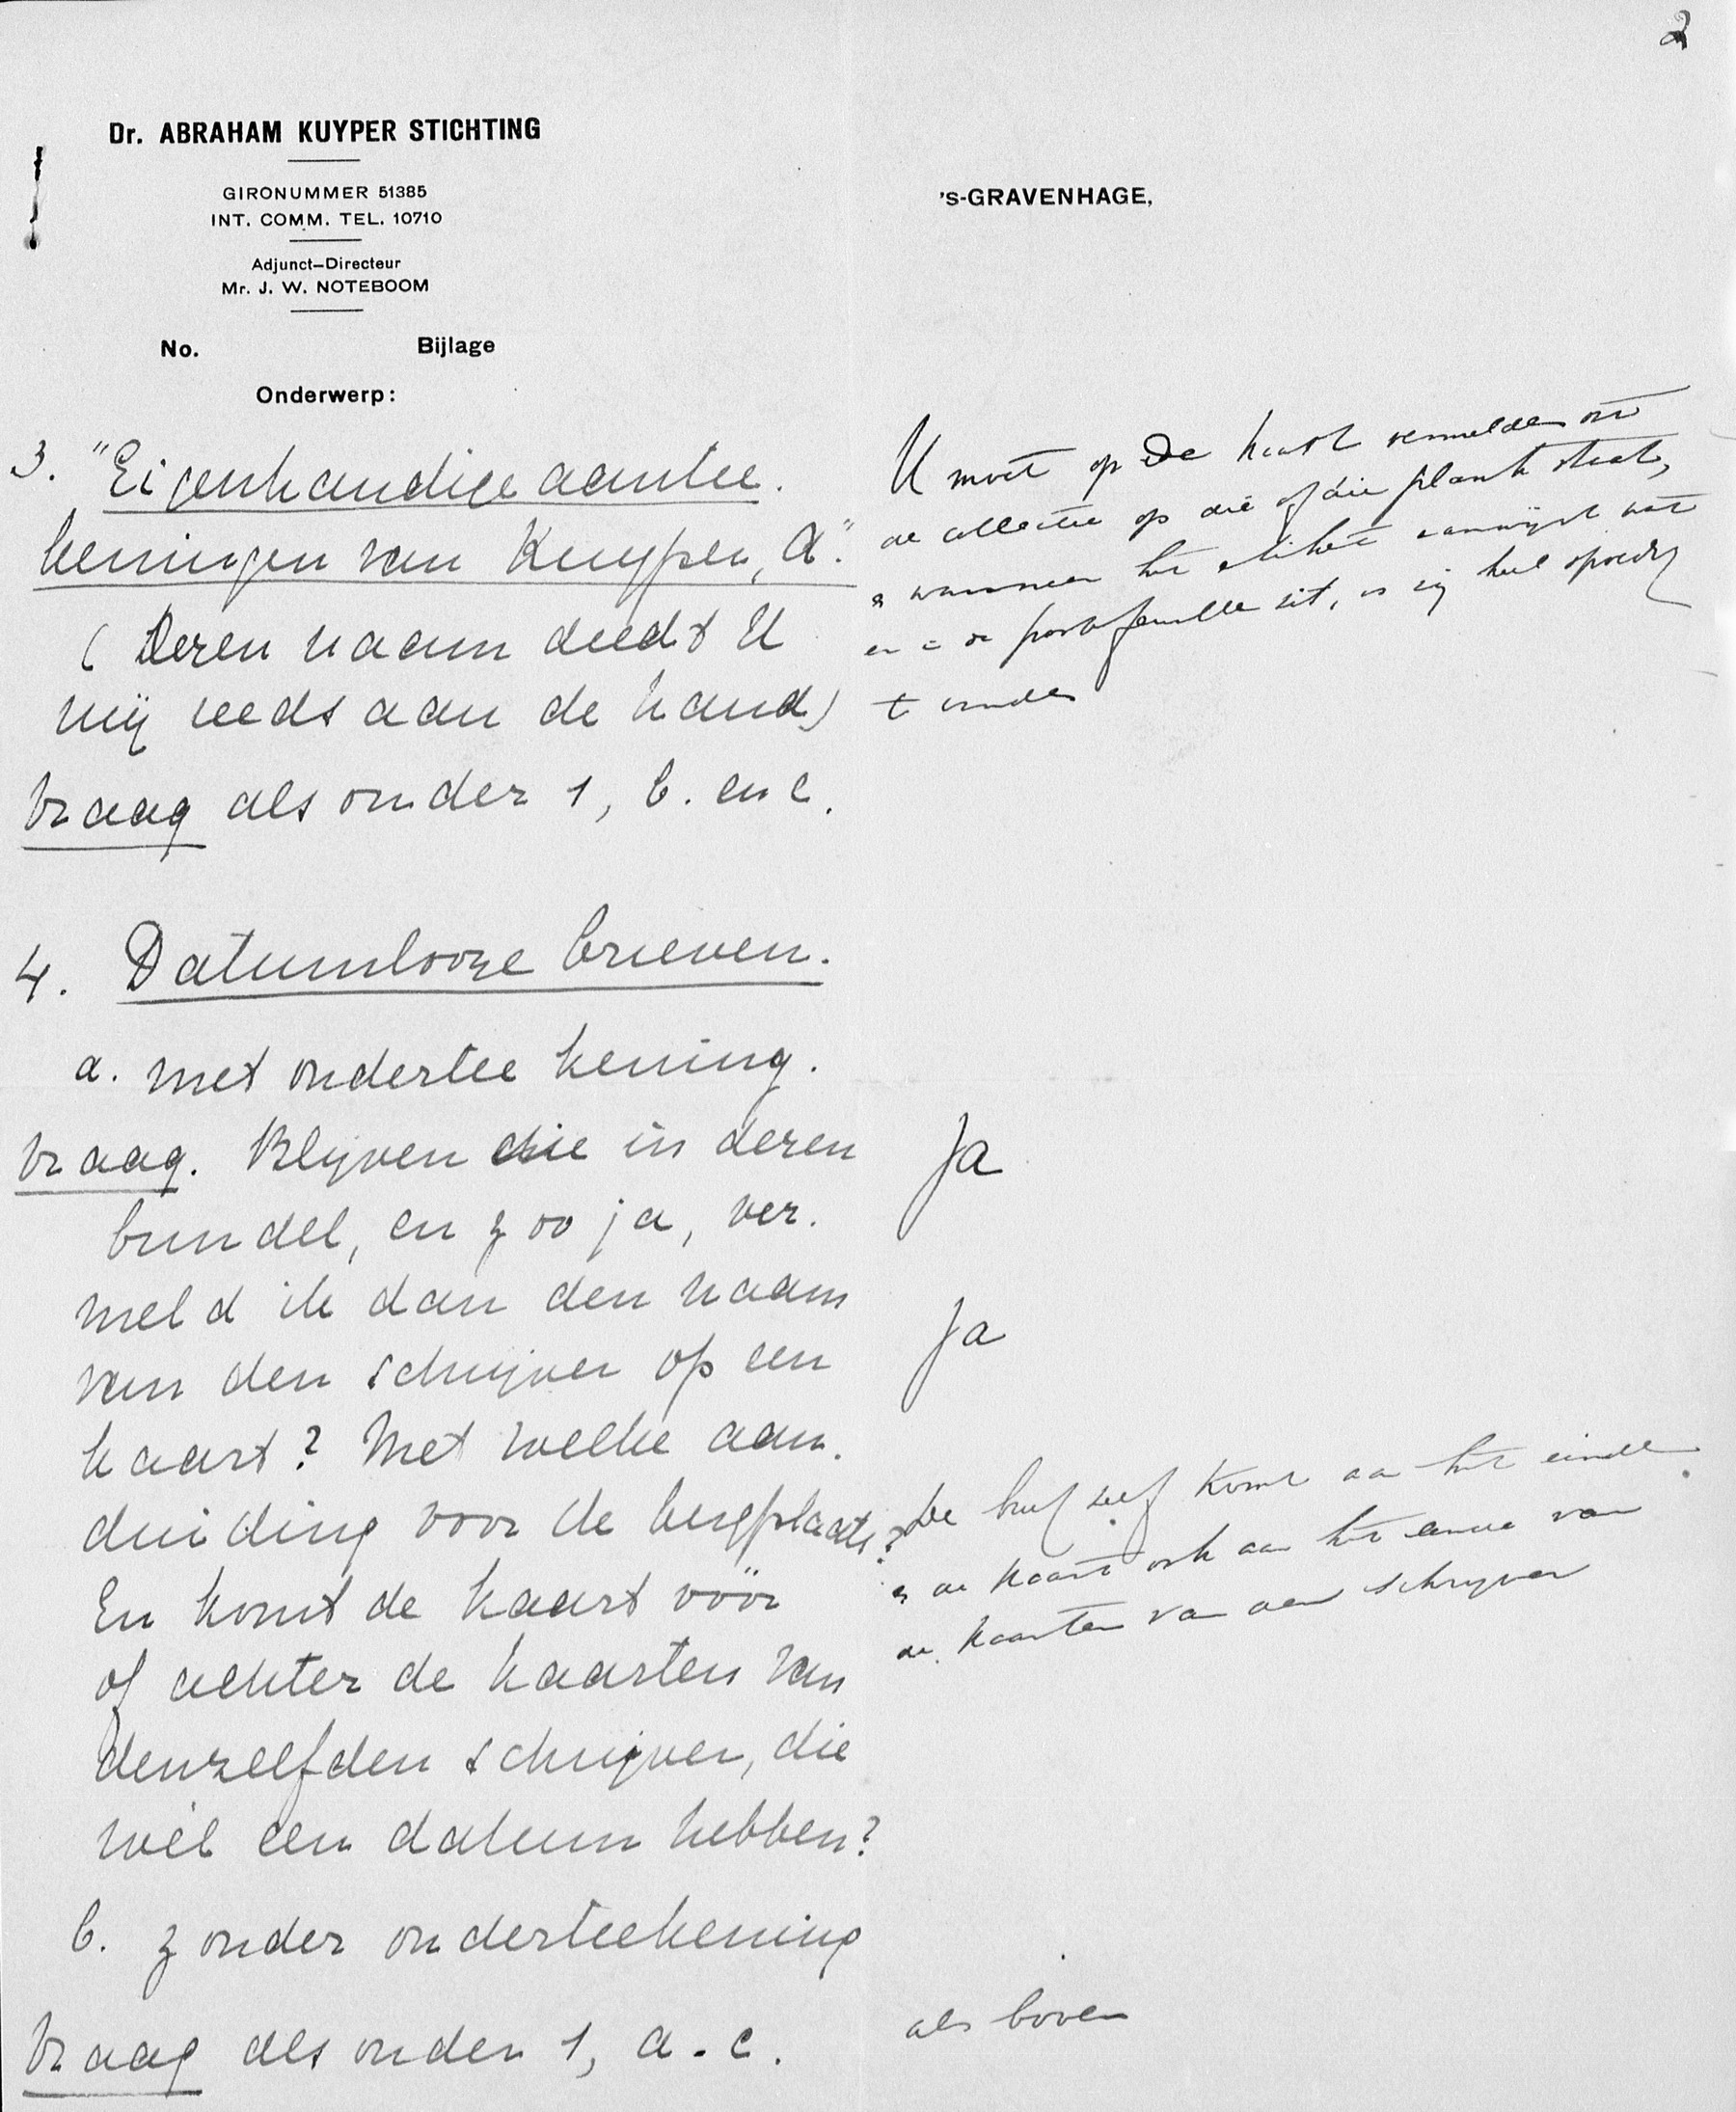 2
Dr. ABRAHAM KUYPER STICHTING
GIRONUMMER 51385
INT. COMM. TEL. 10710
Adjunct-Directeur
Mr. J. W. NOTEBOOM
No. Bijlage
Onderwerp:
's-GRAVENHAGE,
3. "Eigenhandige aantee.
keningen van Kuyper, A."
(Dezen naam deedt U
mij reeds aan de hand)
Vraag als onder 1, b. en c.
U moet op de kast vermelden dat
de collectie op die of die plank staat,
en wanneer het etiket aanwijst wat
er in de portefeuille zit, is zij heel spoedig
te vinden
4. Datumlooze brieven.
a. met onderteekening.
Vraag. Blijven die in dezen
bundel, en zoo ja, ver.
meld ik dan den naam
van den schrijver op een
kaart? Met welke aan.
duiding voor de bergplaats?
En komt de kaart vóór
of achter de kaarten van
denzelfden schrijver, die
wèl een datum hebben?
Ja
Ja
De brief zelf komt aan het einde
en de kaart ook aan het einde van
de kaarten van den schrijver
b. zonder onderteekening
Vraag als onder 1, a-c.
als boven